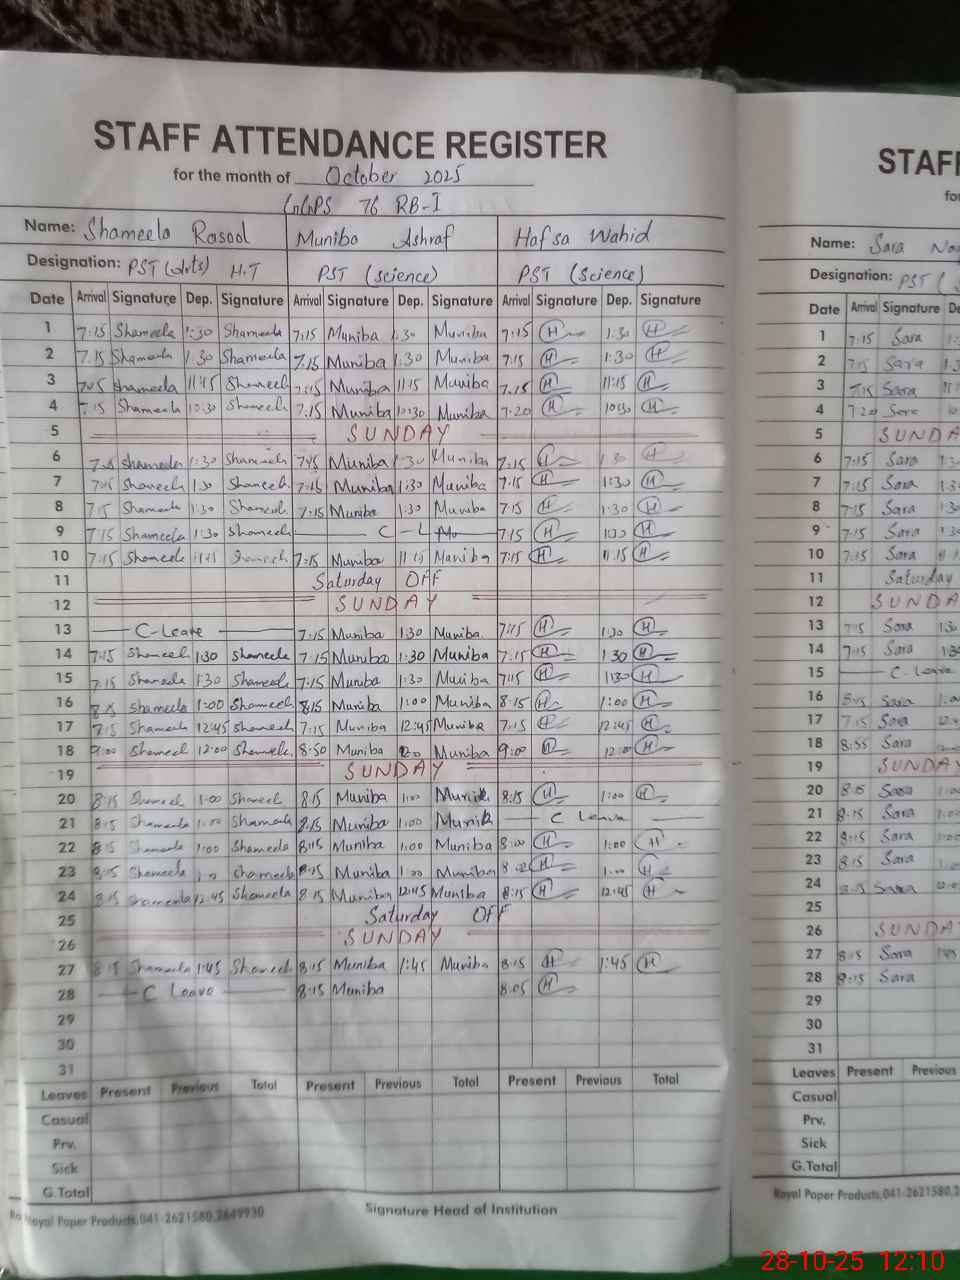 STAFF ATTENDANCE REGISTER
for the month of October 2025
GGPS 76 RB-I
Name: Shameela Rasool Muniba Ashraf Hafsa Wahid
Designation: PST (Arts) H.T PST (Science) PST (Science)
Date Arrival Signature Dep. Signature Arrival Signature Dep. Signature Arrival Signature Dep. Signature
1 7:15 Shameela 1:30 Shameela 7:15 Muniba 1:30 Muniba 7:15 H 1:30 H
2 7:15 Shameela 1:30 Shameela 7:15 Muniba 1:30 Muniba 7:15 H 1:30 H
3 Shameela 11:15 Shameela 7:15 Muniba 11:15 Muniba 7:15 H 11:15 H
4 7:15 Shameela 10:30 Shameela 7:15 Muniba 10:30 Muniba 7:20 H 10:30 H
5 SUNDAY
6 7:15 Shameela 1:30 Shameela Muniba 1:30 Muniba 7:15 H 1:30 H
7 Shameela 1:30 Shameela 7:15 Muniba 1:30 Muniba 7:15 H 1:30 H
8 7:15 Shameela 1:30 Shameela 7:15 Muniba 1:30 Muniba 7:15 H 1:30 H
9 7:15 Shameela 1:30 Shameela C - L 7:15 H H
10 7:15 Shameela 11:15 Shameela 7:15 Muniba 11:15 Muniba 7:15 H 11:15 H
11 Saturday OFF
12 SUNDAY
13 C-Leave 7:15 Muniba 1:30 Muniba 7:15 H 1:30 H
14 Shameela 1:30 Shameela 7:15 Muniba 1:30 Muniba 7:15 H 1:30 H
15 7:15 Shameela 1:30 Shameela 7:15 Muniba 1:30 Muniba H 1:30 H
16 8:15 Shameela 1:00 Shameela 8:15 Muniba 1:00 Muniba 8:15 H 1:00 H
17 7:15 Shameela 12:45 Shameela 7:15 Muniba 12:45 Muniba 7:15 H 12:45 H
18 9:00 Shameela 12:00 Shameela 8:50 Muniba Muniba 9:00 H 12:00 H
19 SUNDAY
20 8:15 Shameela 1:00 Shameela 8:15 Muniba 1:00 Muniba 8:15 H 1:00 H
21 8:15 Shameela 1:00 Shameela 8:15 Muniba 1:00 Muniba C Leave
22 8:15 Shameela 1:00 Shameela 8:15 Muniba 1:00 Muniba 8:00 H 1:00 H
23 8:15 Shameela Shameela 8:15 Muniba 1:00 Muniba H 1:00 H
24 8:15 Shameela 12:45 Shameela 8:15 Muniba 12:45 Muniba 8:15 H 12:45 H
25 Saturday OFF
26 SUNDAY
27 8:15 Shameela 1:45 Shameela 8:15 Muniba 1:45 Muniba 8:15 H 1:45 H
28 C Leave 8:15 Muniba 8:05 H
29
30
31
Leaves Present Previous Total Present Previous Total Present Previous Total
Casual
Prv.
Sick
G.Total
Royal Paper Products,041-2621580,2649930 Signature Head of Institution
STAF
for
Name: Sara
Designation: PST
Date Arrival Signature De
1 7:15 Sara
2 7:15 Sara
3 7:15 Sara
4 7:20 Sara
5 SUNDA
6 7:15 Sara
7 7:15 Sara
8 7:15 Sara
9 7:15 Sara
10 7:15 Sara
11 Saturday
12 SUNDA
13 7:15 Sara 1:30
14 7:15 Sara 1:30
15 C Leave
16 8:15 Sara
17 7:15 Sara
18 8:55 Sara
19 SUNDAY
20 8:15 Sara
21 8:15 Sara
22 8:15 Sara
23 8:15 Sara
24 8:15 Sara
25
26 SUNDA
27 8:15 Sara
28 8:15 Sara
29
30
31
Leaves Present Previous
Casual
Prv.
Sick
G.Total
Royal Paper Products,041-2621580,2
28-10-25 12:10